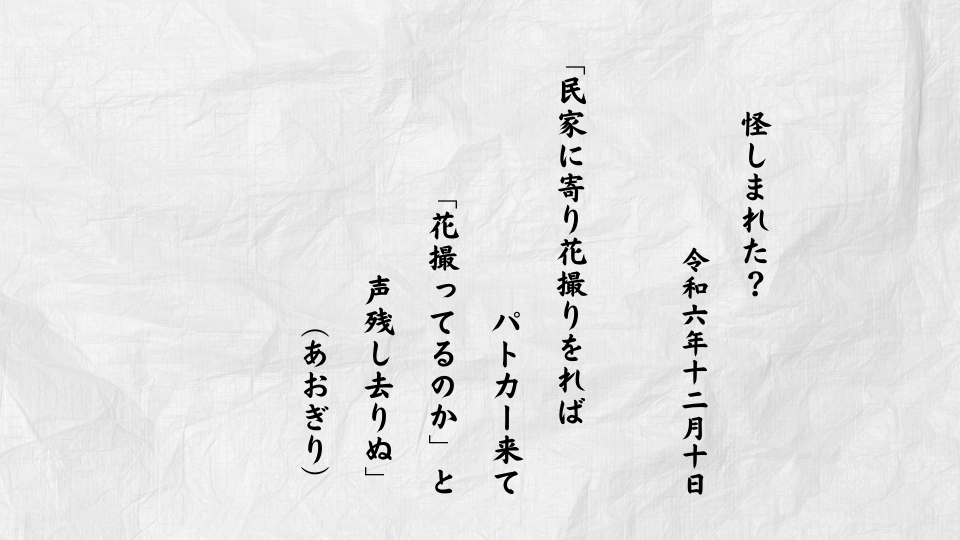 怪しまれた？
令和六年十二月十日
「民家に寄り花撮りをれば
パトカー来て
「花撮ってるのか」と
声残し去りぬ」
（あおぎり）